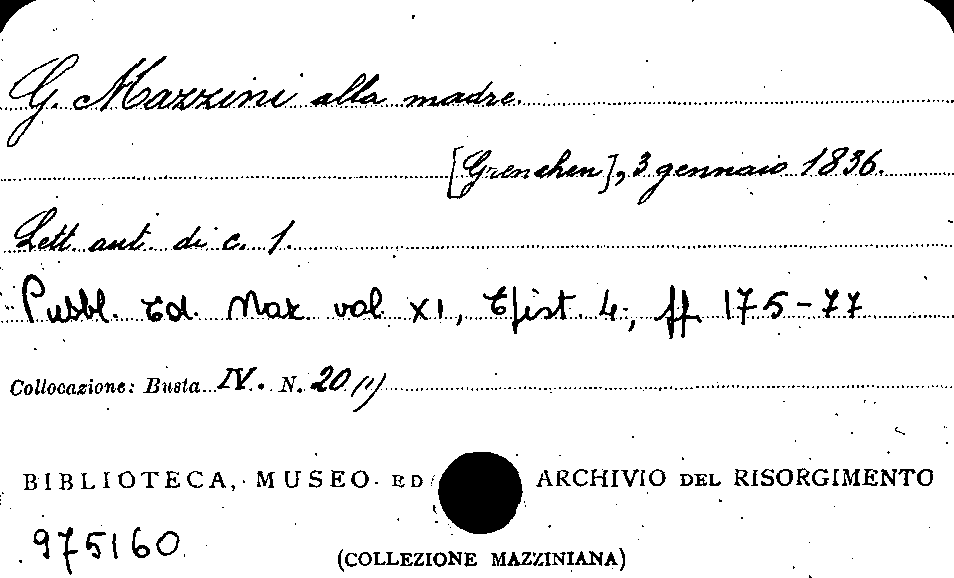 G. Mazzini alla madre.
[Grenchen], 3 gennaio 1836.
Lett. aut. di c. 1.
Pubbl. Ed. Naz. vol. XI, Epist. 4, pp. 175-77
Collocazione: Busta IV. N. 20 (1)
BIBLIOTECA, MUSEO ED ARCHIVIO DEL RISORGIMENTO
975160
(COLLEZIONE MAZZINIANA)